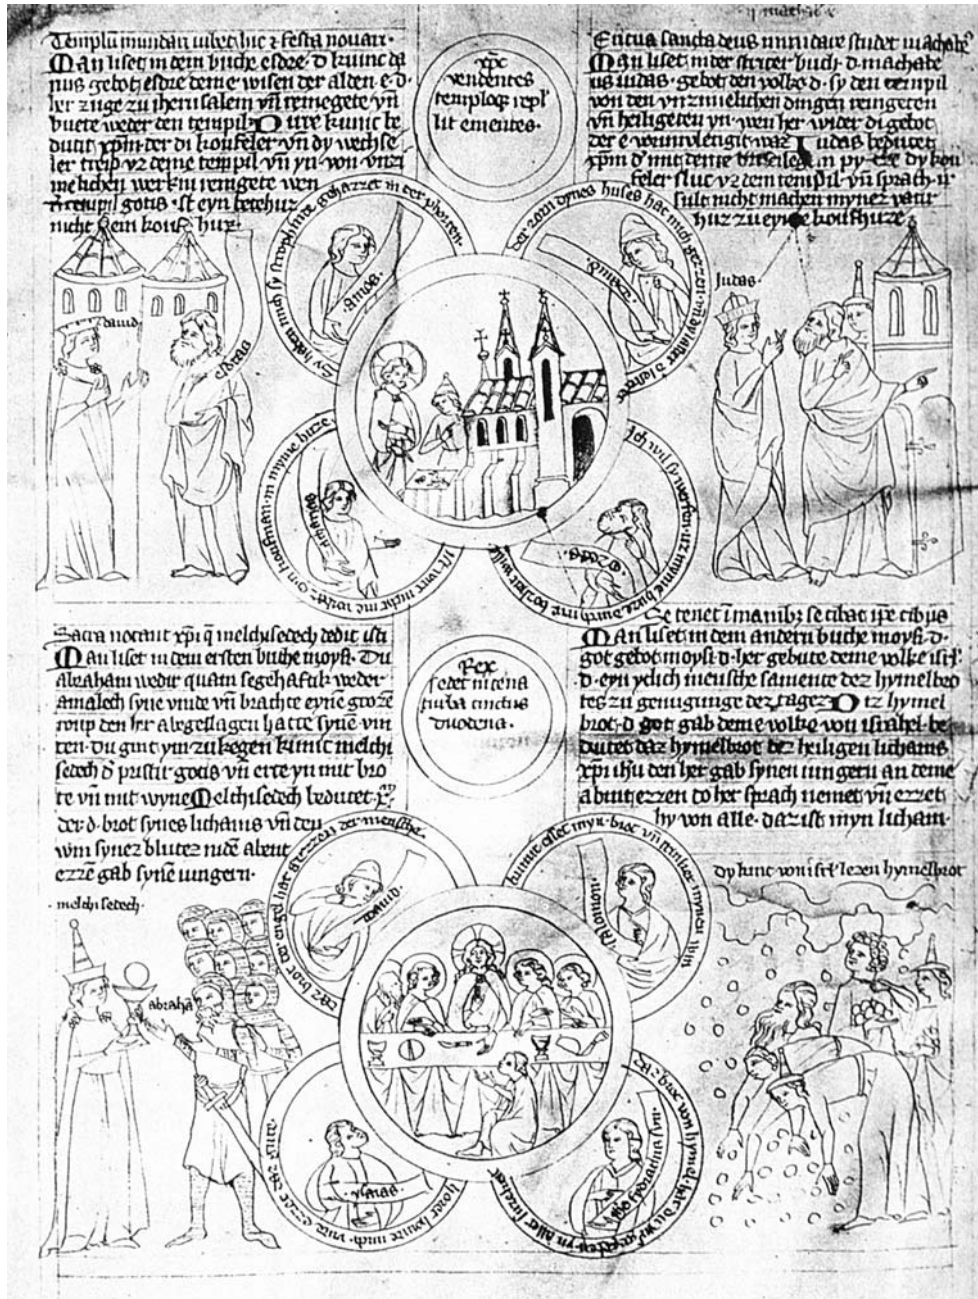 Templū mundari iubet hic ⁊ festa nouari·
Man liset in dem buche esdre· d· kunic da
rius gebot esdre deme wisen der alden e· d·
her zuge zu iherusalem vn̄ reinegete vn̄
buete weder den tempil· Dure kunic be
dutit xp̄m der di koufeler vn̄ dy wechse
ler treip vz deme tempil vn̄ yn von vnzi
melichen werkin reingete wen
d' tempil gotis· ist eyn betehuz
nicht kein kouf huz·
xp̄c
vendentes
temploq; repl'
lit ementes·
En tua sancta deus mundare studet machabe'
Man liset in der striter buch· d· machabe
us iudas· gebot den volke· d· sy den tempil
von den vnzimelichen dingen reingeten
vn̄ heiligeten yn· wen her wider di gebot
der e vorunvlengit waz Judas bedutet
xp̄m d' mit deme
dy kou
feler sluc vz dem tempil vn̄ sprach· ir
sult nicht machen mynez vatir
huz zu eyme koufhuze
der phorten·
Amos·
der zorn dynes huses hat mich gezzen·
dauid
esdras
Judas·
in myme huze·
Ich wil sy werfen· uz myme huze durch ire bosheit wille
Sacra notant xp̄i q̄ melchisedech dedit isti
Man liset in dem ersten buche moysi· Du
abraham wedir quam segehaftik weder
amalech syne viude vn̄ brachte eyne grozē
roup den her abgeslagen hatte synē· vin
ten· Du ginc ym zu kegen kunic melchi
sedech d' pristir gotis vn̄ erte yn mit bro
te vn̄ mit wyne Melchisedech bedutet· xp̄m
der· d· brot synes lichams vn̄ den
win synez blutez in dē abent
ezzē gab synē iungern·
Rex
sedet in cena
turba cinctus
duodena·
Se tenet ī manibȝ se cibat ip̄e cibus
Man liset in dem andern buche moysi· d·
got gebot moysi· d· her gebute deme volke isrl'·
d· eyn yclich mensche samente dez hymelbro
tes zu genugunge dez tagez Ditz hymel
brot· d· got gab deme volke von israhel· be
dutet daz hymelbrot dez heiligen lichams
xp̄i ihū den her gab synen iungern an deme
abintezzen do her sprach nemet vn̄ ezzet
hy von alle· daz ist myn licham·
daz brot der engel hat gezzen der mensche·
dauid
kumit esset myn· brot vn̄ trinket mynen win
salomon·
dy kint von isrl'· lezen hymelbrot
·melchisedech·
abrahā
ysaias·
horet horinde mich· vnde ezzet daz gute·